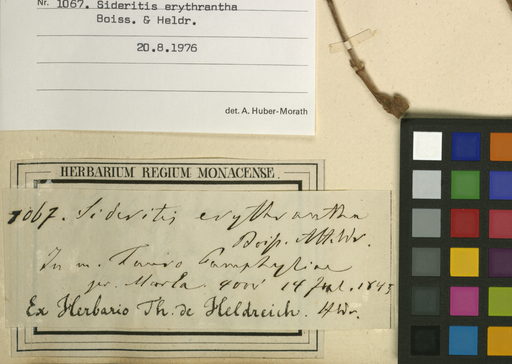 Nr. 1067. Sideritis erythrantha
Boiss. & Heldr.
20.8.1976
det. A. Huber-Morath
HERBARIUM REGIUM MONACENSE.
1067. Sideritis erythrantha
Boiss.
In m. Tauro Pamphyliae
4000' 14 Jul. 1845
Ex Herbario Th. de Heldreich.